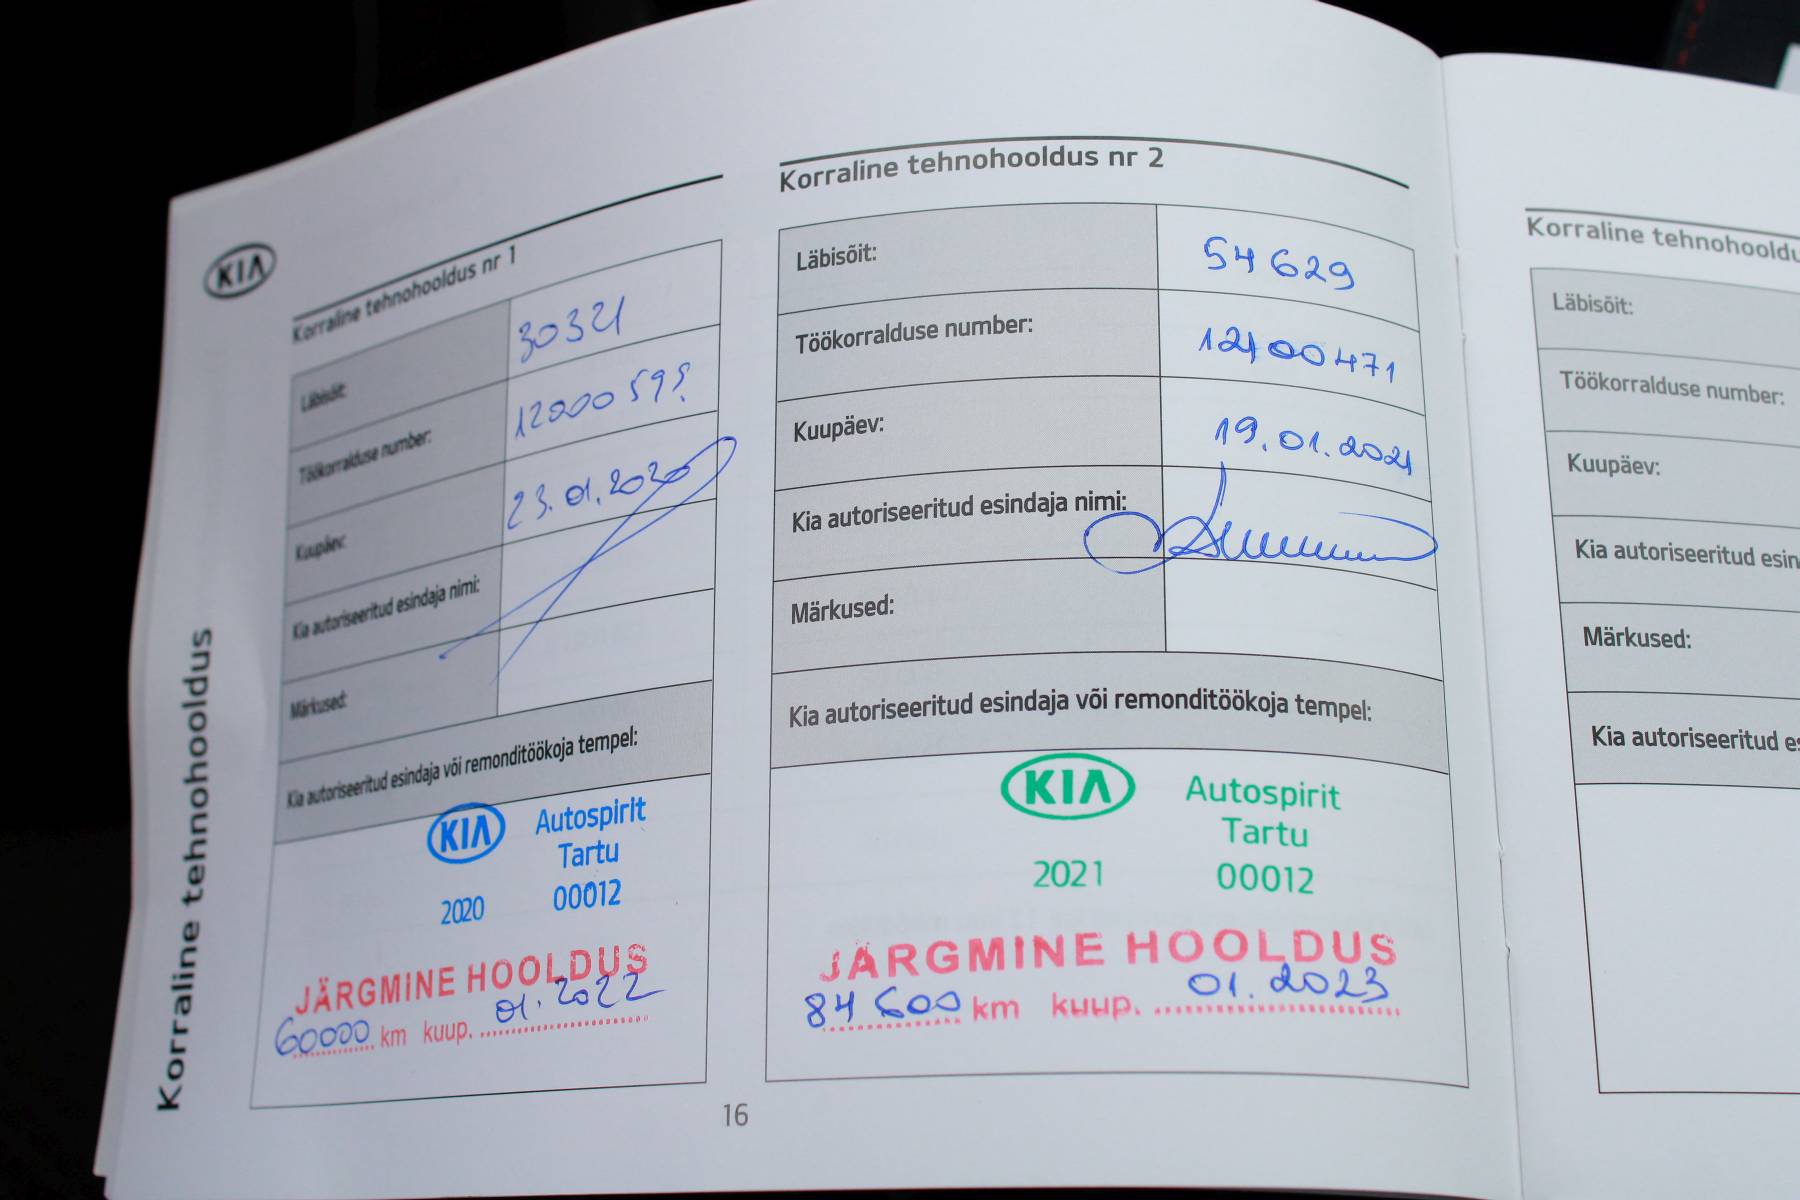 KIA
Korraline tehnohooldus
Korraline tehnohooldus nr 1
Läbisõit: 30321
Töökorralduse number:
Kuupäev: 23.01.2020
Kia autoriseeritud esindaja nimi:
Märkused:
Kia autoriseeritud esindaja või remonditöökoja tempel:
KIA Autospirit
Tartu
2020 00012
JÄRGMINE HOOLDUS
60000 km kuup. 01.2022
Korraline tehnohooldus nr 2
Läbisõit: 54 629
Töökorralduse number: 12100471
Kuupäev: 19.01.2021
Kia autoriseeritud esindaja nimi:
Märkused:
Kia autoriseeritud esindaja või remonditöökoja tempel:
KIA Autospirit
Tartu
2021 00012
JÄRGMINE HOOLDUS
84 600 km kuup. 01.2023
16
Korraline tehnohooldu
Läbisõit:
Töökorralduse number:
Kuupäev:
Kia autoriseeritud esin
Märkused:
Kia autoriseeritud es